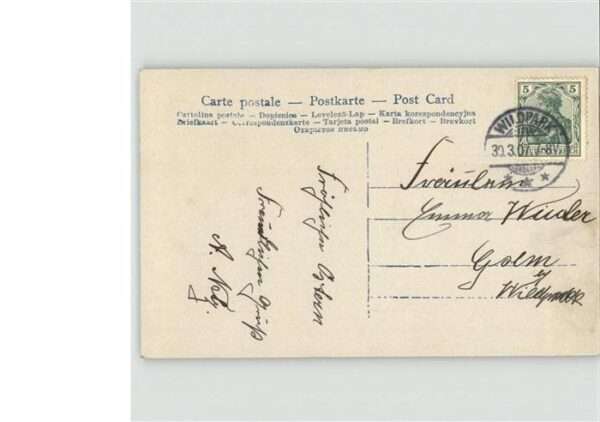 Carte postale — Postkarte — Post Card
Cartolina postale – Dopisnice – Levelező-Lap – Karta korespondencyjna
Briefkaart – Correspondenzkarte – Tarjeta postal – Brefkort – Brevkort
Открытое письмо
5 5
WILDPARK
30.3.07. 7-8V.
Fräulein
Emma
Golm
b/
Wildpark
Fröhliche Ostern
Freundlichen Gruß
A.